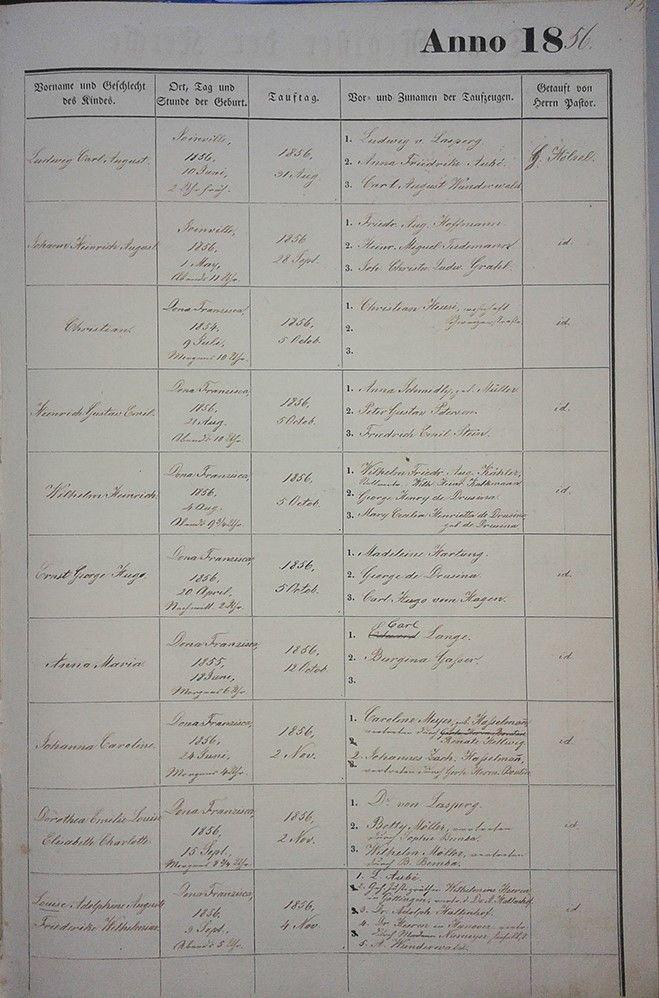 Anno 1856.
Vorname und Geschlecht
des Kindes.
Ort, Tag und
Stunde der Geburt.
Tauftag.
Vor- und Zunamen der Taufzeugen.
Getauft von
Herrn Pastor.
Ludwig Carl August.
Joinville,
1856,
10 Juni,
2 Uhr früh.
1856,
31 Aug.
1. Ludwig v. Lasperg.
2. Anna Friedrike Aubé.
3. Carl August Wunderwald
G. Hölzel.
Johann Heinrich August.
Joinville,
1856.
1 May,
Abends 11 Uhr.
1856
28 Sept.
1. Friedr. Aug. Hoffmann
2. Heinr. Miguel Tiedemann
3. Joh. Christ. Ludw. Grahl.
id.
Christian.
Dona Francisca,
1854.
9 Juli,
Morgens 10 Uhr.
1856,
5 Octob.
1. Christian
2.
3.
id.
Heinrich Gustav Emil.
Dona Francisca,
1856.
21 Aug.
Abends 10 Uhr.
1856,
5 Octob.
1. Anna Schmidt, geb. Müller
2. Peter Gustav Petersen
3. Friedrich Emil Stein.
id.
Wilhelm Heinrich
Dona Francisca,
1856.
4 Aug.
Abends 9¾ Uhr.
1856,
5 Octob.
1. Wilhelm Friedr. Aug. Köhler,
2. George Henry de Drusina
3. Mary Cecilia Henrietta de Drusina
geb. de Drusina
id.
Ernst George Hugo.
Dona Francisca,
1856,
20 April,
Nachmitt. 2 Uhr.
1856,
5 Octob.
1. Madeleine Hartung.
2. George de Drusina
3. Carl Hugo vom Hagen.
id.
Anna Maria
Dona Francisca,
1855,
18 Juni,
Morgens 6 Uhr.
1856.
12 Octob.
Carl
1. Eduard Lange.
2. Burgina Gasser.
3.
id.
Johanna Caroline.
Dona Francisca,
1856,
24 Juni,
Morgens 4 Uhr.
1856,
2 Nov.
1. Caroline Meyer, geb. Hasselmann
vertreten durch
Renate Hellwig
2. Johannes Zach. Hasselmann,
vertreten durch
id.
Dorothea Emilie Louise
Elisabeth Charlotte.
Dona Francisca,
1856,
15 Sept.,
Morgens 3¾ Uhr.
1856,
2 Nov.
1. Dr. von Lasperg.
2. Betty Möller, vertreten
durch Sophie Bemba.
3. Wilhelm Möller, vertreten
durch B. Bemba.
id.
Louise Adolphine Auguste
Friederike Wilhelmine.
Dona Francisca,
1856,
3 Sept.,
Abends 5 Uhr.
1856,
4 Nov.
1. L. Aubé.
2. Wilhelmine
in Göttingen,
3. Dr. Adolph Haltenhof.
4. in Hanover,
durch Niemeyer
5. A. Wunderwald.
id.